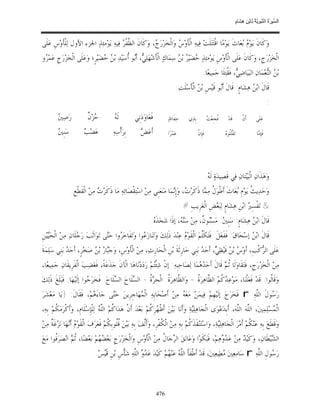 السّيرَة النَبَويَة لابْن هِشام
وَكَانَ يَوْمُ بُعَاثَ يَوْمًا اقْتَتَلَتْ فِيهِ الْأَوْسُ وَالْخَزْرَجُ، وَكَانَ الظَّفَرُ فِيهِ يَوْمئِذٍ اجزء الأول لِلْأَوْسِ عَلَى
الْخَزْرَجِ، وَكَانَ عَلَى الْأَوْسِ يَوْمَئِذٍ حُضَيْرُ بْنُ سِمَاكٍ الْأَشْهَلِيُّ، أَبُو أُسَيْدِ بْنُ حُضَيْرٍ؛ وَعَلَى الْخَزْرَجِ عَمْرُو
بْنُ النُّعْمَانِ الْبَيَاضِيُّ، فَقُتِلَا جَمِيعًا.
قَالَ ابْنُ هِشَامٍ: قَالَ أَبُو قَيْسِ بْنُ الْأَسْلَتِ
:
عَلَى أَنْ قَدْ فُجِعْتُ بِذِي حِفَاظٍ فَعَاوَدَنِي لَهُ حُزْنٌ رَصِينٌ
فَإِمَّا تَقْتُلُوهُ فَإِنَّ عَمْرًا أَعَضَّ بِرَأْسِهِ عَضْبٌ سَنِينٌ
وَهَذَانِ الْبَيْتَانِ فِي قَصِيدَةٍ لَهُ
وَحَدِيثُ يَوْمِ بُعَاثَ أَطْوَلُ مِمَّا ذَكَرْتُ، وَإِنَّمَا مَنَعَنِي مِنْ اسْتِقْصَائِهِ مَا ذَكَرْتُ مِنْ الْقَطْعِ.
تَفْسِيرُ ابْنِ هِشَامٍ لِبَعْضِ الْغَرِيبِ
قَالَ ابْنُ هِشَامٍ: سَنِينٌ: مَسْنُونٌ، مِنْ سَنَّهُ، إذَا شَحَذَهُ
قَالَ ابْنُ إسْحَاقَ: فَفَعَلَ. فَتَكَلَّمَ الْقَوْمُ عِنْدَ ذَلِكَ وَتَنَازَعُوا وَتَفَاخَرُوا حَتَّى تَوَاثَبَ رَجُلَانِ مِنْ الْحَيَّيْنِ
عَلَى الرُّكَبِ، أَوْسُ بْنُ قَيْظِيٍّ، أَحَدُ بَنِي حَارِثَةَ بْنِ الْحَارِثِ، مِنْ الْأَوْسِ، وَجَبَّارُ بْنُ صَخْرٍ، أَحَدُ بَنِي سَلِمَةَ
مِنْ الْخَزْرَجِ، فَتَقَاوَلَا ثُمَّ قَالَ أَحَدُهُمَا لِصَاحِبِهِ: إنْ شِئْتُمْ رَدَدْنَاهَا الْآنَ جَذَعَةً، فَغَضِبَ الْفَرِيقَانِ جَمِيعًا،
وَقَالُوا: قَدْ فَعَلْنَا، مَوْعِدُكُمْ الظَّاهِرَةُ - وَالظَّاهِرَةُ: الْحَرَّةُ - السِّلَاحَ السِّلَاحَ. فَخَرَجُوا إلَيْهَا. فَبَلَغَ ذَلِكَ
رَسُولَ اللَّهِ ﷺ فَخَرَجَ إلَيْهِمْ فِيمَنْ مَعَهُ مِنْ أَصْحَابِهِ الْمُهَاجِرِينَ حَتَّى جَاءَهُمْ، فَقَالَ: (يَا مَعْشَرَ
الْمُسْلِمِينَ، اللَّهَ اللَّهَ، أَبِدَعْوَى الْجَاهِلِيَّةِ وَأَنَا بَيْنَ أَظْهُرِكُمْ بَعْدَ أَنْ هَدَاكُمْ اللَّهُ لِلْإِسْلَامِ، وَأَكْرَمَكُمْ بِهِ،
وَقَطَعَ بِهِ عَنْكُمْ أَمْرَ الْجَاهِلِيَّةِ، وَاسْتَنْقَذَكُمْ بِهِ مِنْ الْكُفْرِ، وَأَلَّفَ بِهِ بَيْنَ قُلُوبِكُمْ فَعَرَفَ الْقَوْمُ أَنَّهَا نَزْغَةٌ مِنْ
الشَّيْطَانِ، وَكَيْدٌ مِنْ عَدُوِّهِمْ، فَبَكَوْا وَعَانَقَ الرِّجَالُ مِنْ الْأَوْسِ وَالْخَزْرَجِ بَعْضُهُمْ بَعْضًا، ثُمَّ انْصَرَفُوا مَعَ
رَسُولِ اللَّهِ ﷺ سَامِعِينَ مُطِيعِينَ، قَدْ أَطْفَأَ اللَّهُ عَنْهُمْ كَيْدَ عَدُوِّ اللَّهِ شَأْسِ بْنِ قَيْسٍ
476